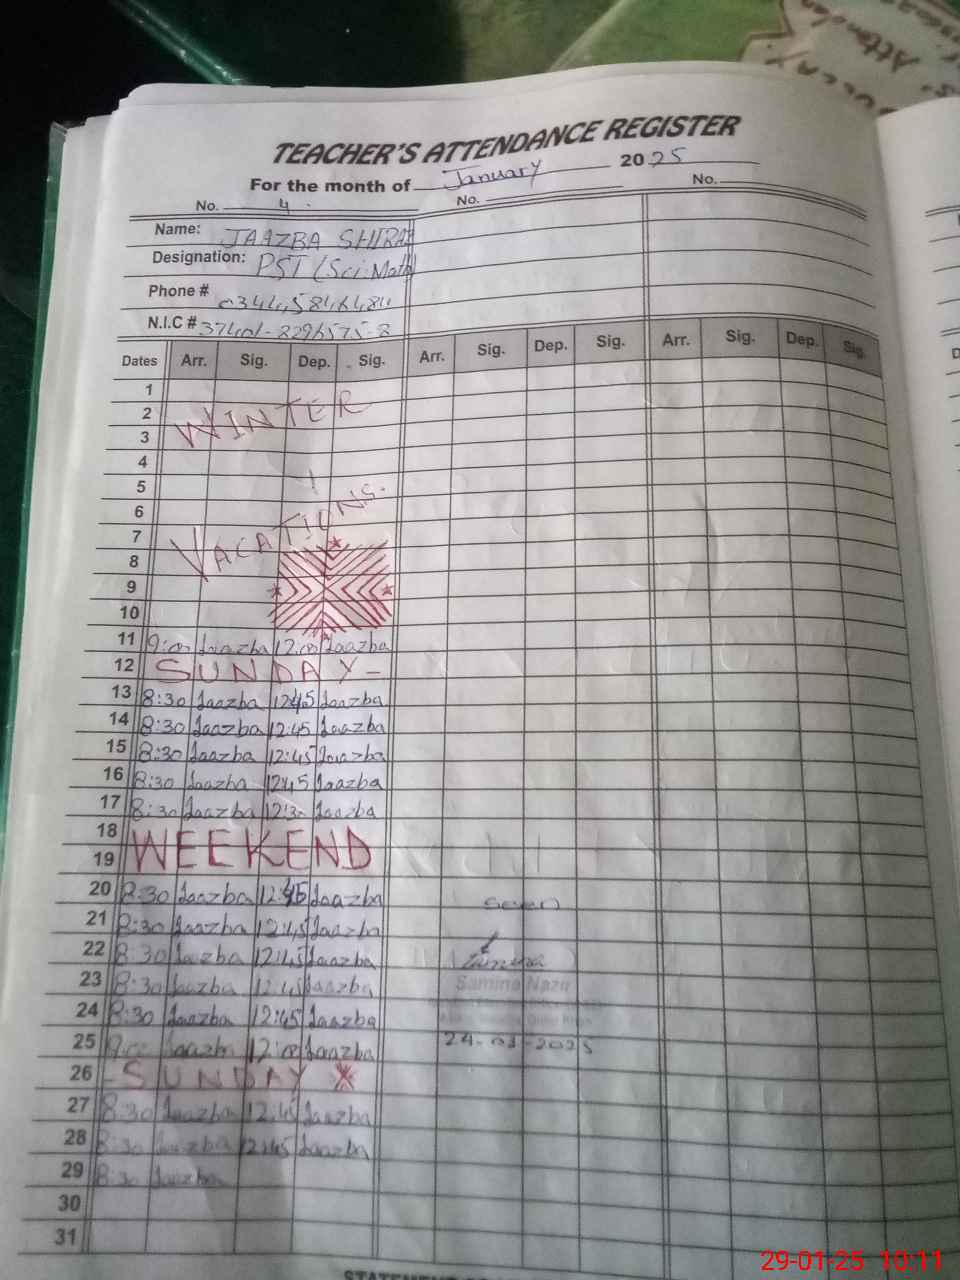 TEACHER'S ATTENDANCE REGISTER
For the month of January 2025
No. 4. No. No.
Name: JAAZBA SHIRAZ
Designation: PST (Sci.Math)
Phone # 03445846484
N.I.C # 37401-8296575-8
Dates Arr. Sig. Dep. Sig. Arr. Sig. Dep. Sig. Arr. Sig. Dep. Sig.
1
2 WINTER
3
4
5
6
7 VACATIONS.
8
9
10
11 9:00 Jaazba 12:00 Jaazba
12 SUNDAY-
13 8:30 Jaazba 12:45 Jaazba
14 8:30 Jaazba 12:45 Jaazba
15 8:30 Jaazba 12:45 Jaazba
16 8:30 Jaazba 12:45 Jaazba
17 8:30 Jaazba 12:30 Jaazba
18 WEEKEND
19
20 8:30 Jaazba 12:45 Jaazba Seven
21 8:30 Jaazba 12:45 Jaazba
22 8:30 Jaazba 12:45 Jaazba
23 8:30 Jaazba 12:45 Jaazba Samina Naz
24 8:30 Jaazba 12:45 Jaazba
25 9:00 Jaazba 12:00 Jaazba 24-01-2025
26 -SUNDAY
27 8:30 Jaazba 12:45 Jaazba
28 8:30 Jaazba 12:45 Jaazba
29 8:30 Jaazba
30
31
29-01-25 10:11